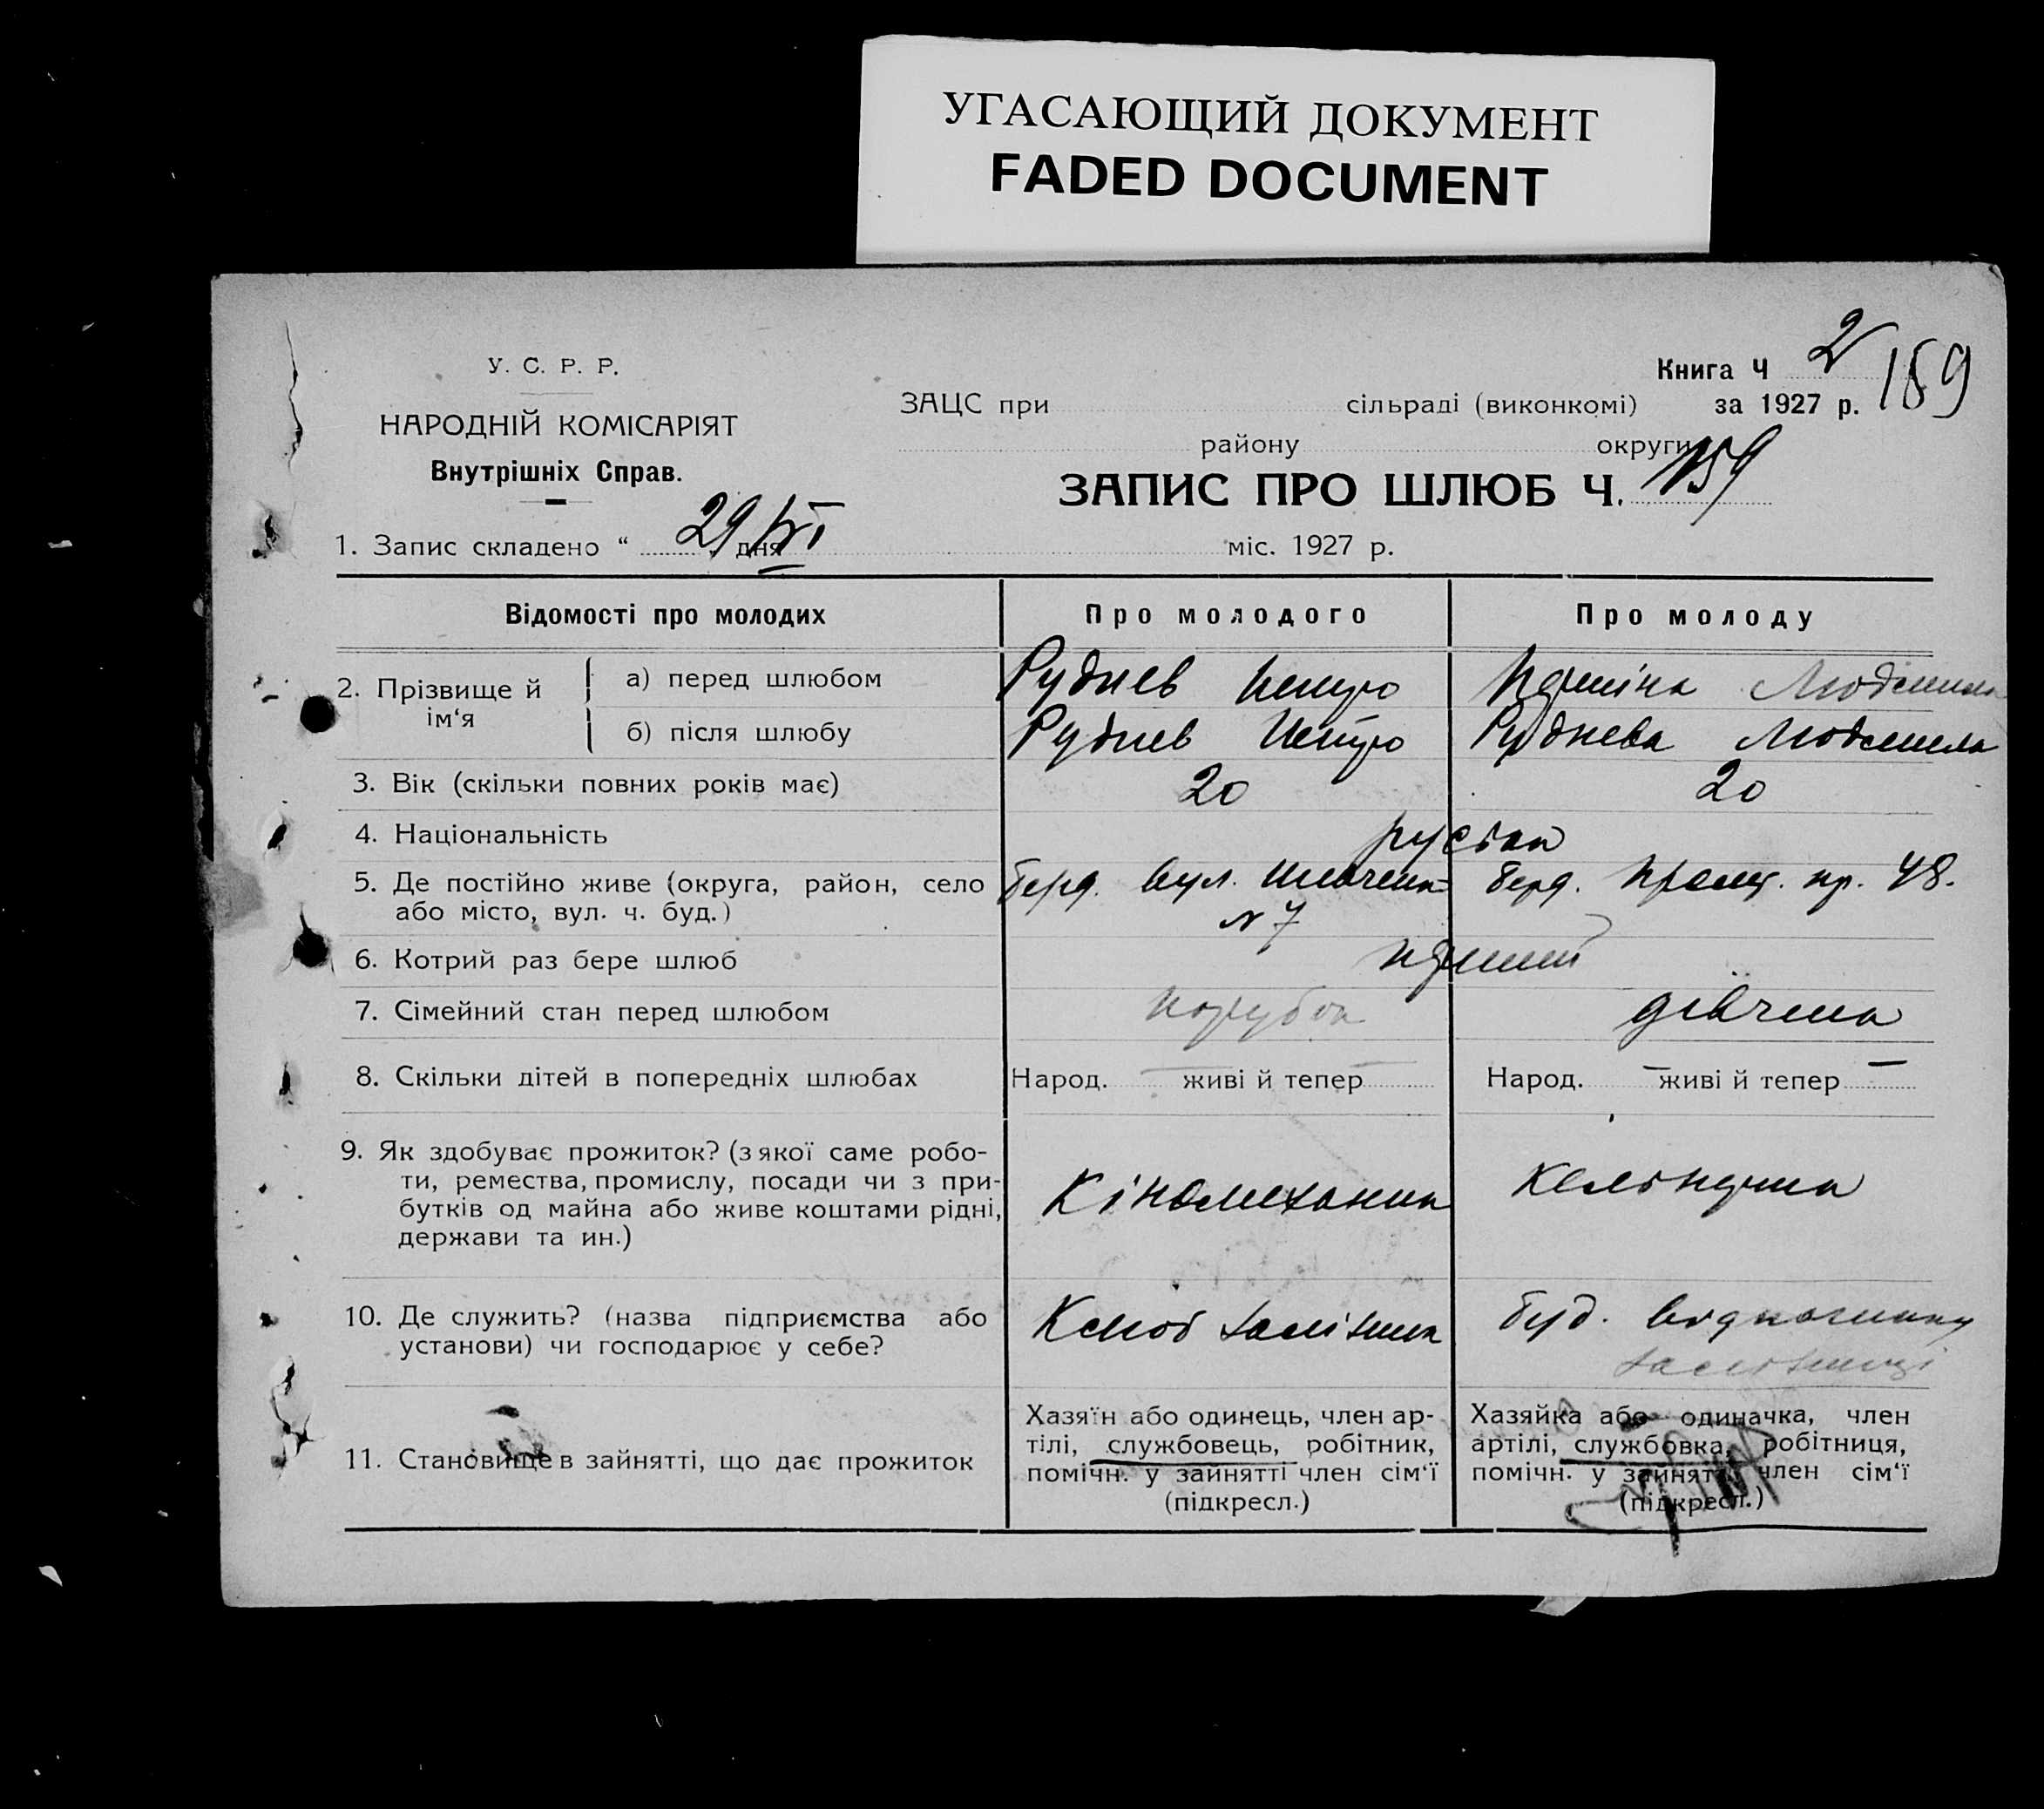 УГАСАЮЩИЙ ДОКУМЕНТ
FADED DOCUMENT
У. С. Р. Р.
НАРОДНІЙ КОМІСАРІЯТ
Внутрішніх Справ.
Книга Ч 2
159
ЗАЦС при сільраді (виконкомі) за 1927 р.
району округи
ЗАПИС ПРО ШЛЮБ Ч. 159
1. Запис складено “ 29/VI дня міс. 1927 р.
Відомості про молодих Про молодого Про молоду
2. Прізвище й ім‘я
а) перед шлюбом Руднев Людмила
б) після шлюбу Руднев Руднева Людмила
3. Вік (скільки повних років має) 20 20
4. Національність
5. Де постійно живе (округа, район, село Берд. вул. Берд. Пролет. пр. 48.
або місто, вул. ч. буд.) № 7
6. Котрий раз бере шлюб перший
7. Сімейний стан перед шлюбом парубок дівчина
8. Скільки дітей в попередніх шлюбах Народ. — живі й тепер Народ. — живі й тепер —
9. Як здобуває прожиток? (з якої саме робо-
ти, ремества, промислу, посади чи з при-
бутків од майна або живе коштами рідні,
держави та ин.)
Кіномеханик
10. Де служить? (назва підприємства або
установи) чи господарює у себе?
Клюб
буд. відпочинку
11. Становище в зайнятті, що дає прожиток
Хазяїн або одинець, член ар-
тілі, службовець, робітник,
помічн. у зайнятті член сім‘ї
(підкресл.)
Хазяйка або одиначка, член
артілі, службовка, робітниця,
помічн. у зайнятті член сім‘ї
(підкресл.)